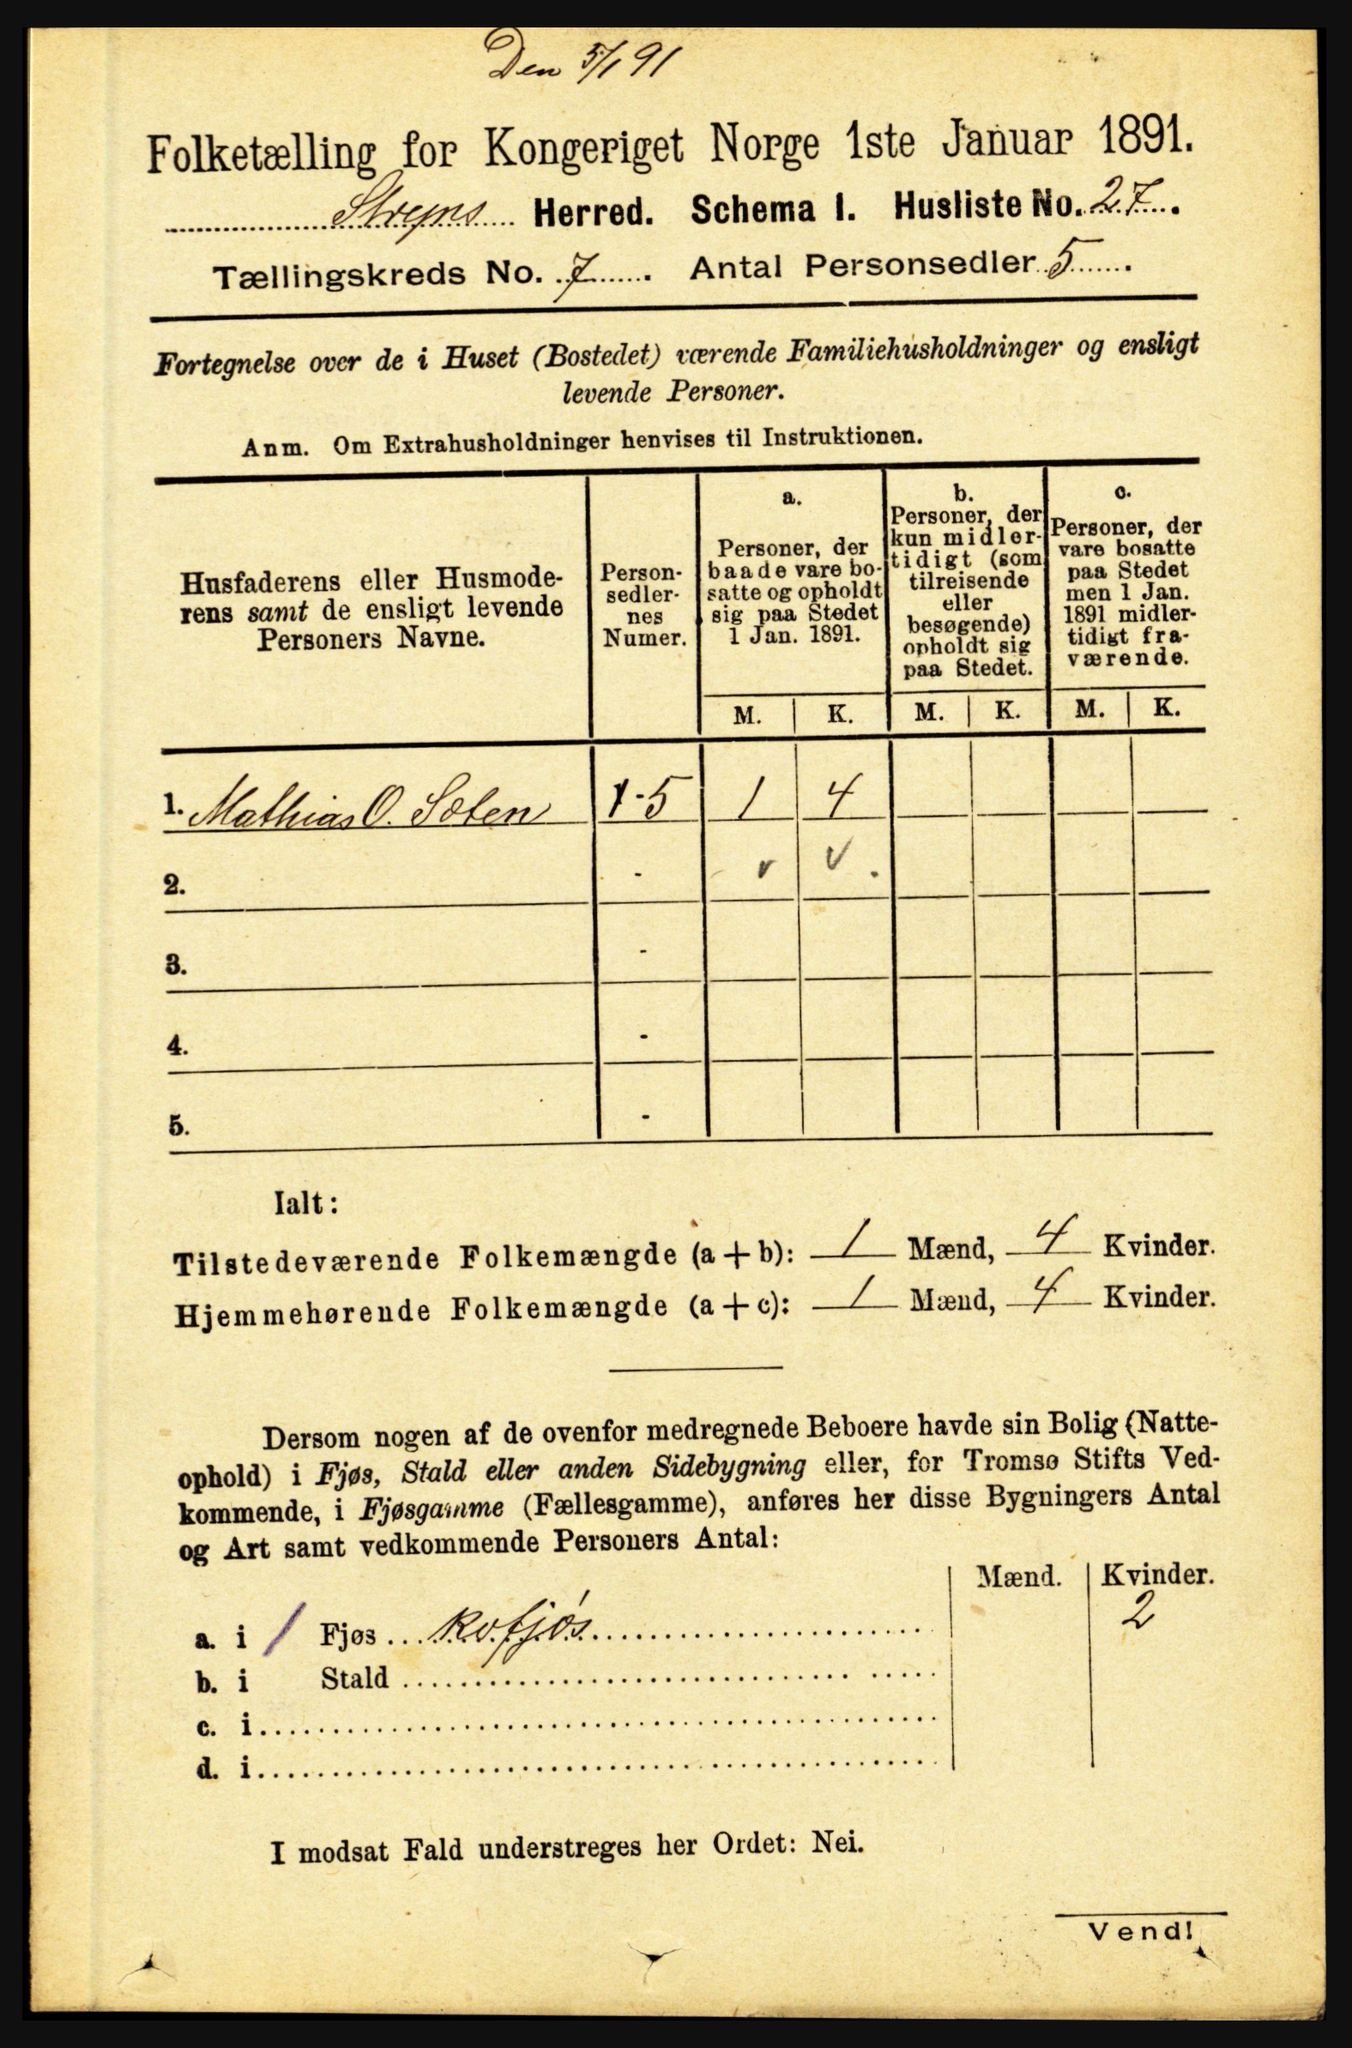 Den 5/1 91
Folketælling for Kongeriget Norge 1ste Januar 1891.
Stryns Herred. Schema I. Husliste No. 27.
Tællingskreds No. 7. Antal Personsedler 5.
Fortegnelse over de i Huset (Bostedet) værende Familiehusholdninger og ensligt
levende Personer.
Anm. Om Extrahusholdninger henvises til Instruktionen.
Husfaderens eller Husmode-
rens samt de ensligt levende
Personers Navne.
Person-
sedler-
nes
Numer.
a.
Personer, der
baade vare bo-
satte og opholdt
sig paa Stedet
1 Jan. 1891.
b.
Personer, der
kun midler-
tidigt (som
tilreisende
eller
besøgende)
opholdt sig
paa Stedet.
c.
Personer, der
vare bosatte
paa Stedet
men 1 Jan.
1891 midler-
tidigt fra-
værende.
M. K. M. K. M. K.
1. Mathias O. Sæten 1-5 1 4
2. - v v .
3. -
4. -
5. -
Ialt:
Tilstedeværende Folkemængde (a + b): 1 Mænd, 4 Kvinder.
Hjemmehørende Folkemængde (a + c): 1 Mænd, 4 Kvinder.
Dersom nogen af de ovenfor medregnede Beboere havde sin Bolig (Natte-
ophold) i Fjøs, Stald eller anden Sidebygning eller, for Tromsø Stifts Ved-
kommende, i Fjøsgamme (Fællesgamme), anføres her disse Bygningers Antal
og Art samt vedkommende Personers Antal:
Mænd. Kvinder.
a. i 1 Fjøs Kofjøs 2
b. i Stald
c. i
d. i
I modsat Fald understreges her Ordet: Nei.
Vend!